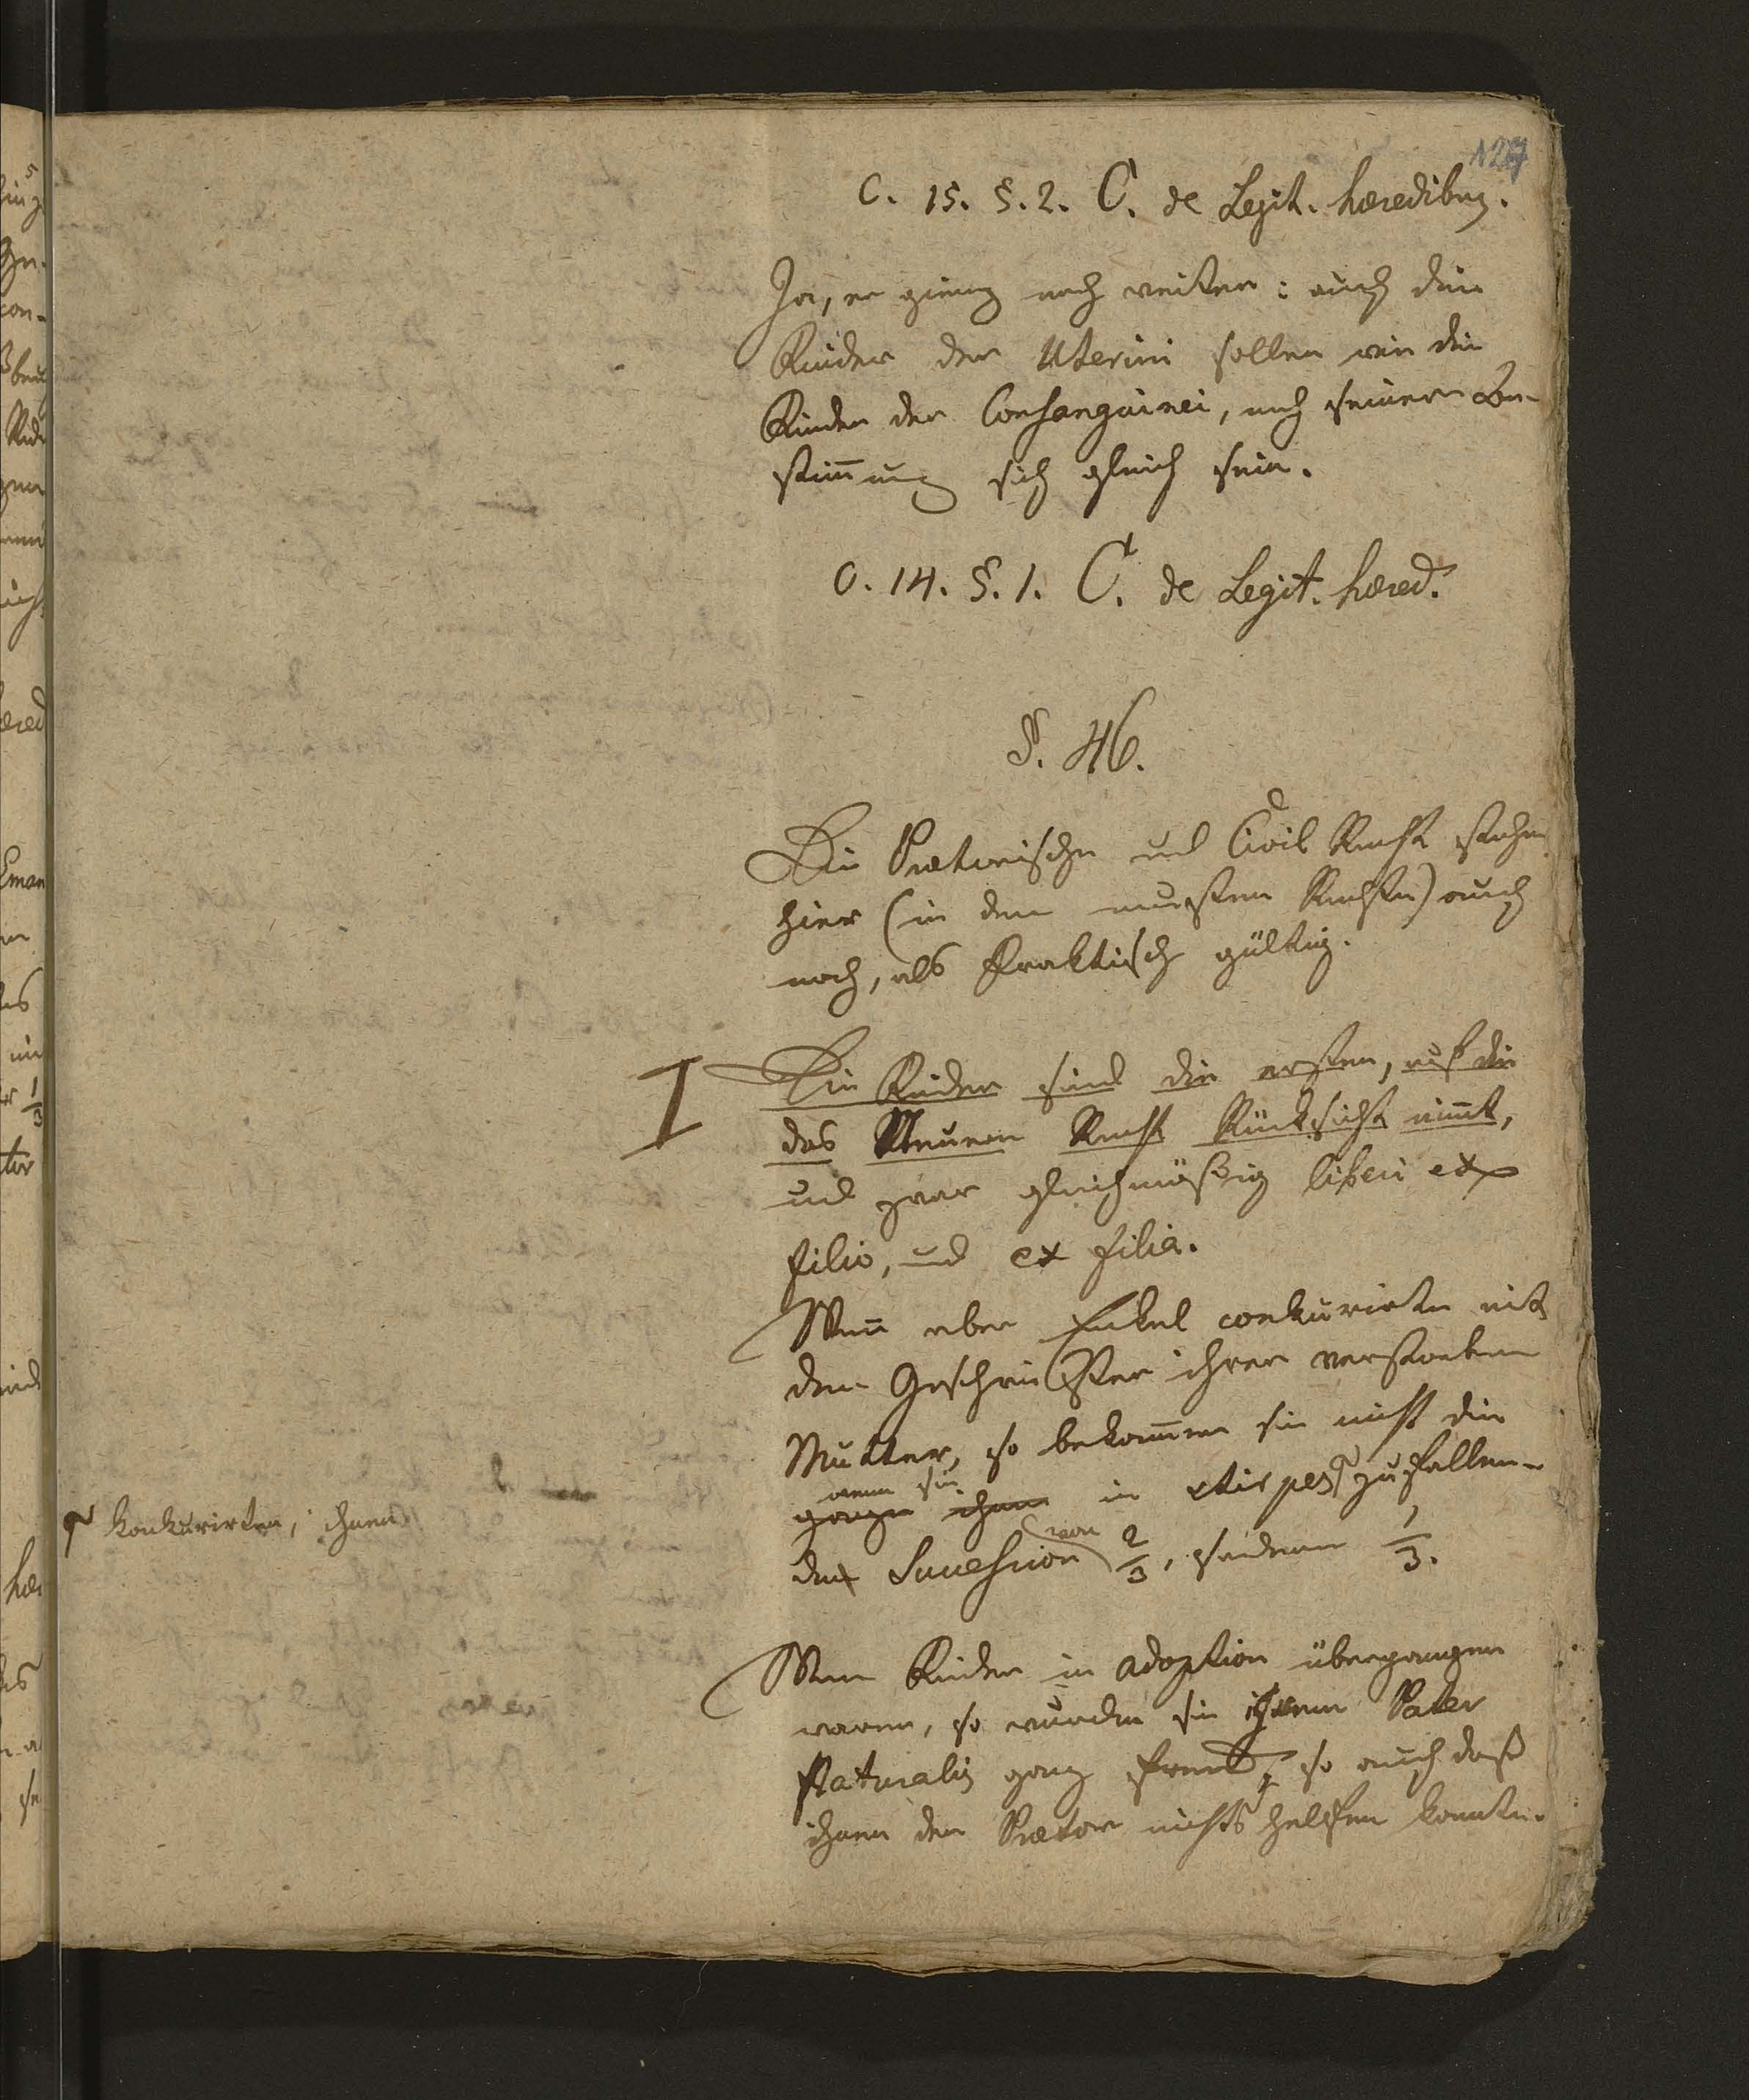 127
C. 15. §. 2. C. de Legit. hæredibus.
Ja, er gieng noch weiter: auch die
Kinder der Uterini sollen wie die
Kinder der Consanguinei, nach seiner Be-
stim̅ung sich gleich sein.
C. 14. §. 1. C. de Legit. hæred.
§. 46.
Die Prætorische und Civil Recht stehen
hier (in dem neusten Rechte) auch
noch, als Praktisch gültig.
I Die Kinder sind die ersten, auf die
das Neuere Recht Rücksicht nim̅t,
und zwar gleichmäßig liberi ex
filio, und ex filia.
Wen̅ aber Enkel conkurirten mit
den Geschwister ihrer verstorbenen
Mutter, so bekom̅en sie nicht die
wenn sie
ganze ihnen in stirpes zufallen-
konkurirten, ihnen
de Succession von 2/3, sondern 1/3.
Wenn Kinder in adoption übergangen
waren, so wurden sie ihrem Pater
Naturalis ganz fremd, so auch daß
ihnen der Prætor nichts helfen konnte.